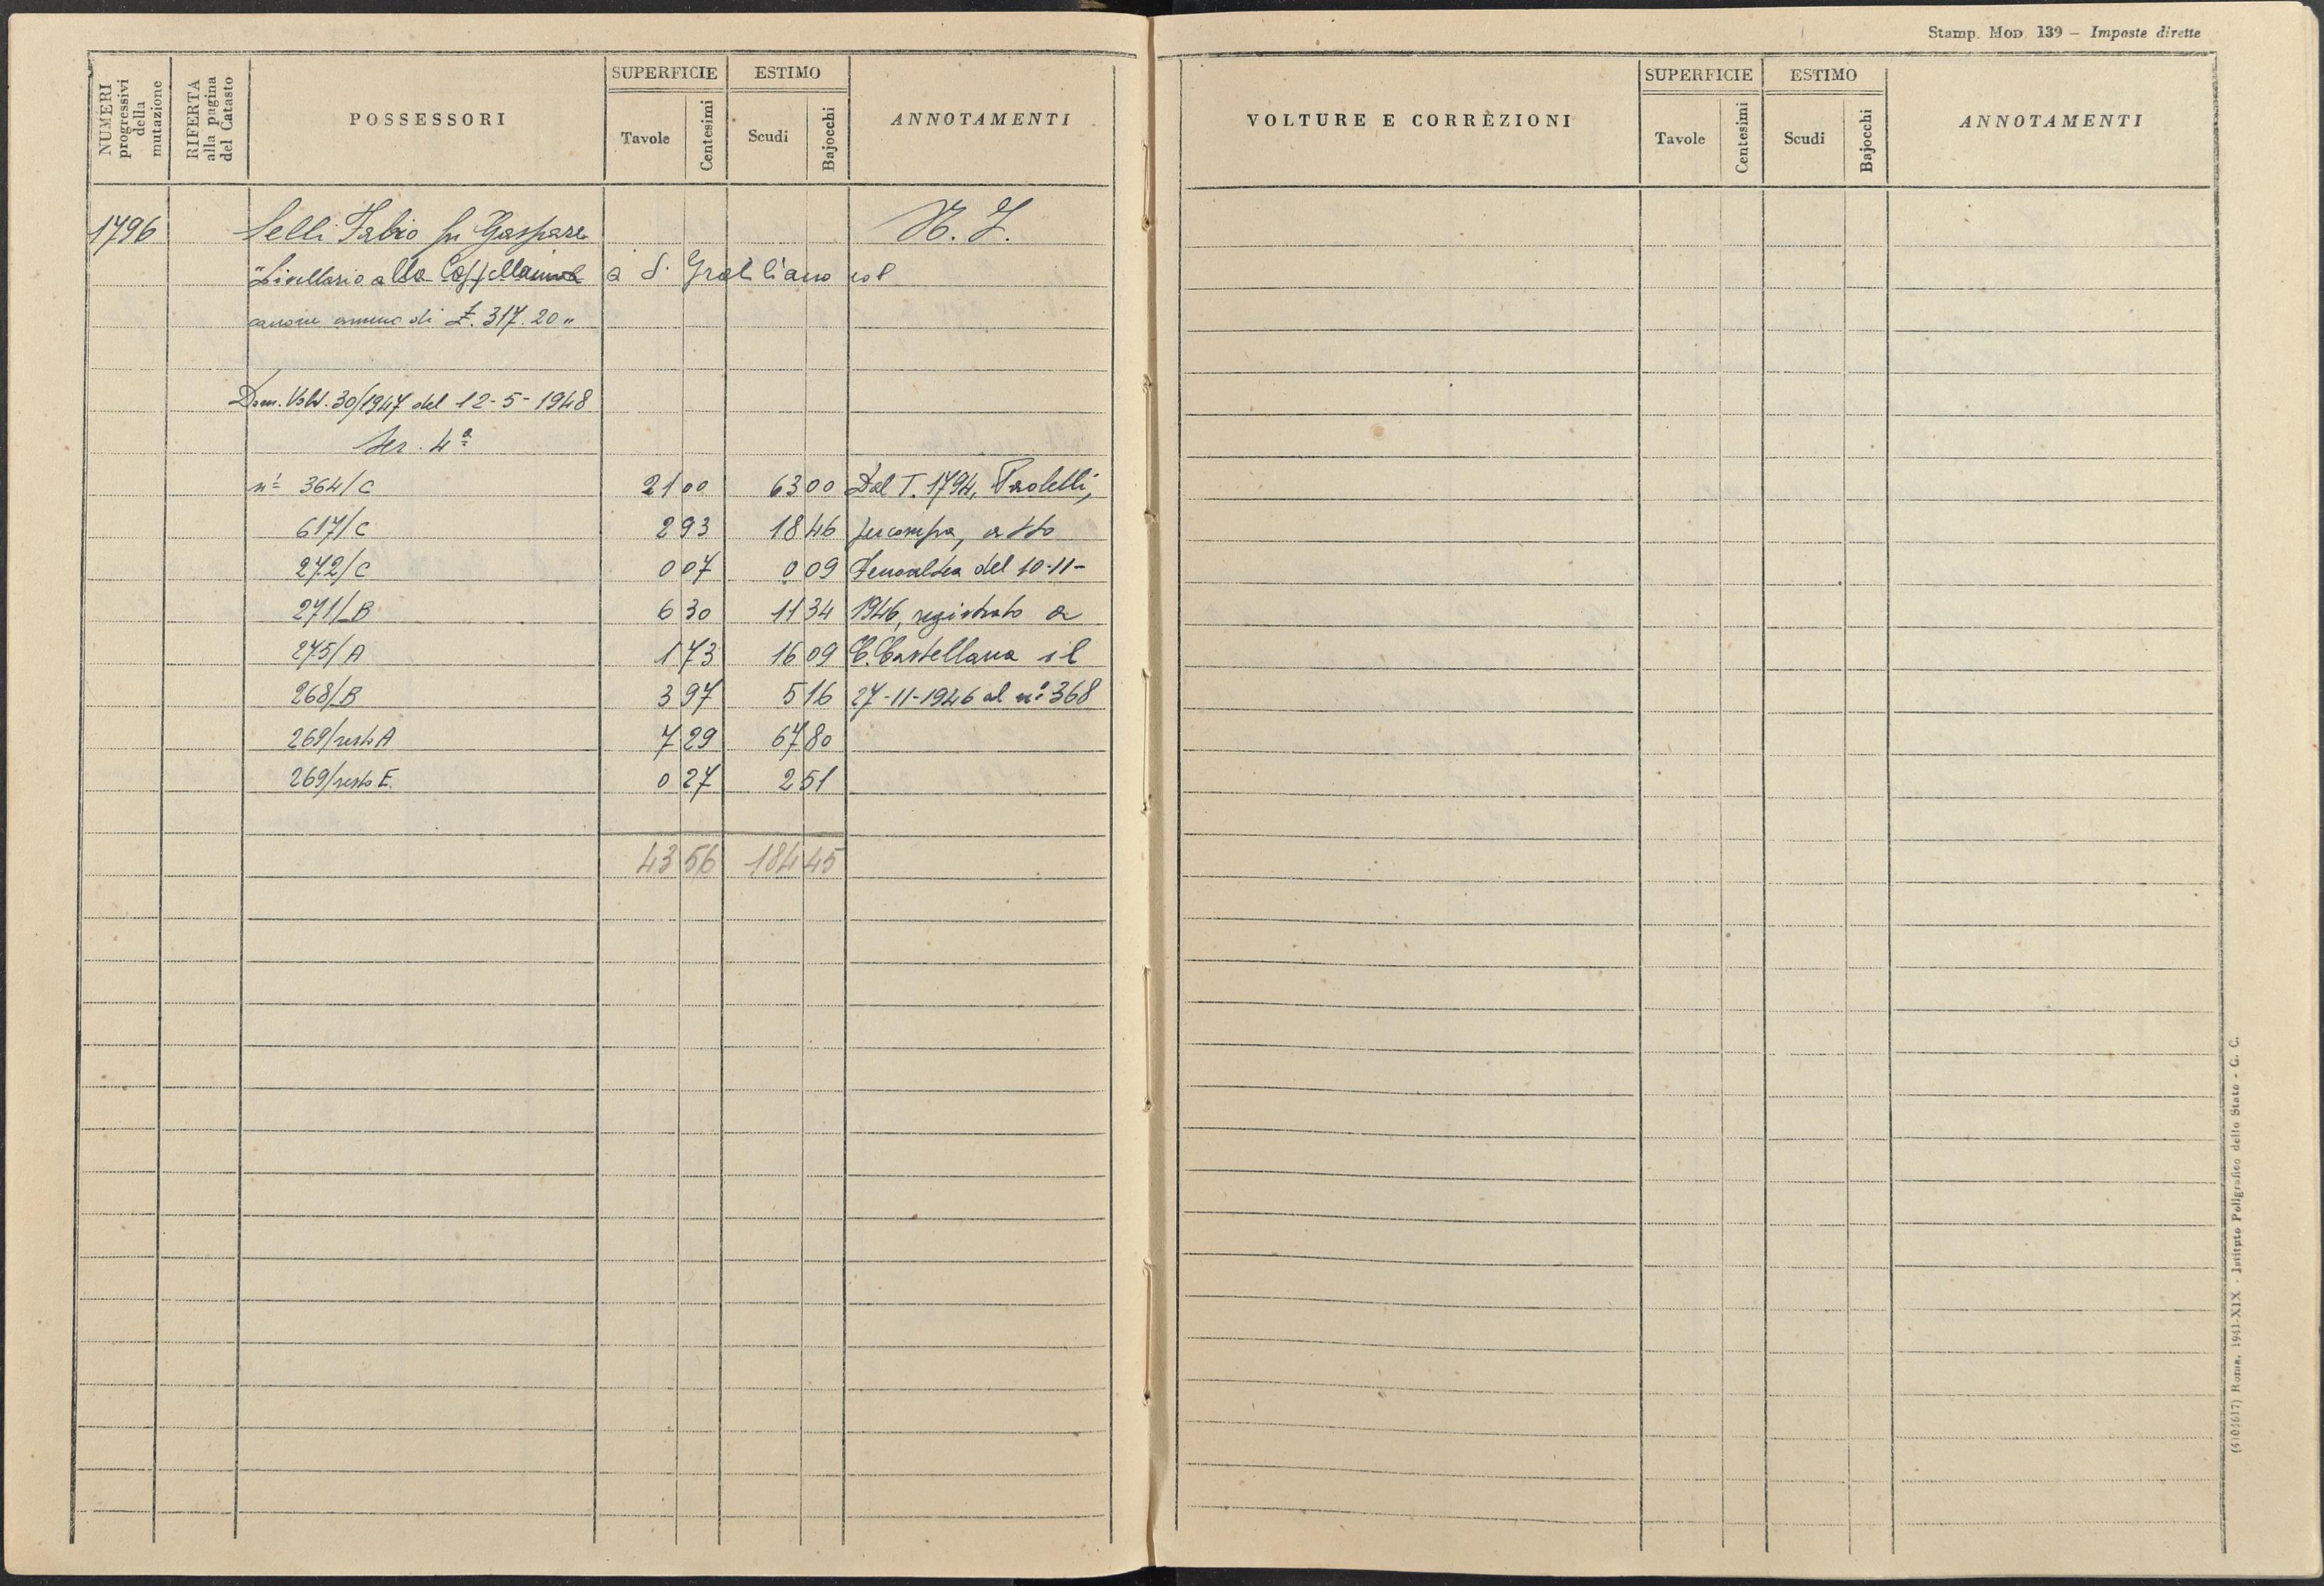 Stamp. Mod. 139 — Imposte dirette
NUMERI progressivi della mutazione
RIFERTA alla pagina del Catasto
POSSESSORI
SUPERFICIE
Tavole
Centesimi
ESTIMO
Scudi
Bajocchi
ANNOTAMENTI
1796 Selli Fabio fu Gaspare
"Livellario alla a S. Gratiliano col
canone annuo di £. 317.20"
Dom. Volt. 30/1947 del 12-5-1948
Ser. 4ª
n¹ 364/C 21 00 63 00 Dal T. 1794, Paoletti,
617/C 2 93 18 46 per compra, atto
272/C 0 07 0 09 Fenoaltea del 10-11-
271/B 6 30 11 34 1946, registrato a
275/A 1 73 16 09 C. Castellana il
268/B 3 97 5 16 27-11-1946 al n° 368
269/resto A 7 29 67 80
269/resto E. 0 27 2 51
43 56 184 45
VOLTURE E CORRÈZIONI
SUPERFICIE
Tavole
Centesimi
ESTIMO
Scudi
Bajocchi
ANNOTAMENTI
Roma, 1941-XIX - Istituto Poligrafico dello Stato - G. C.